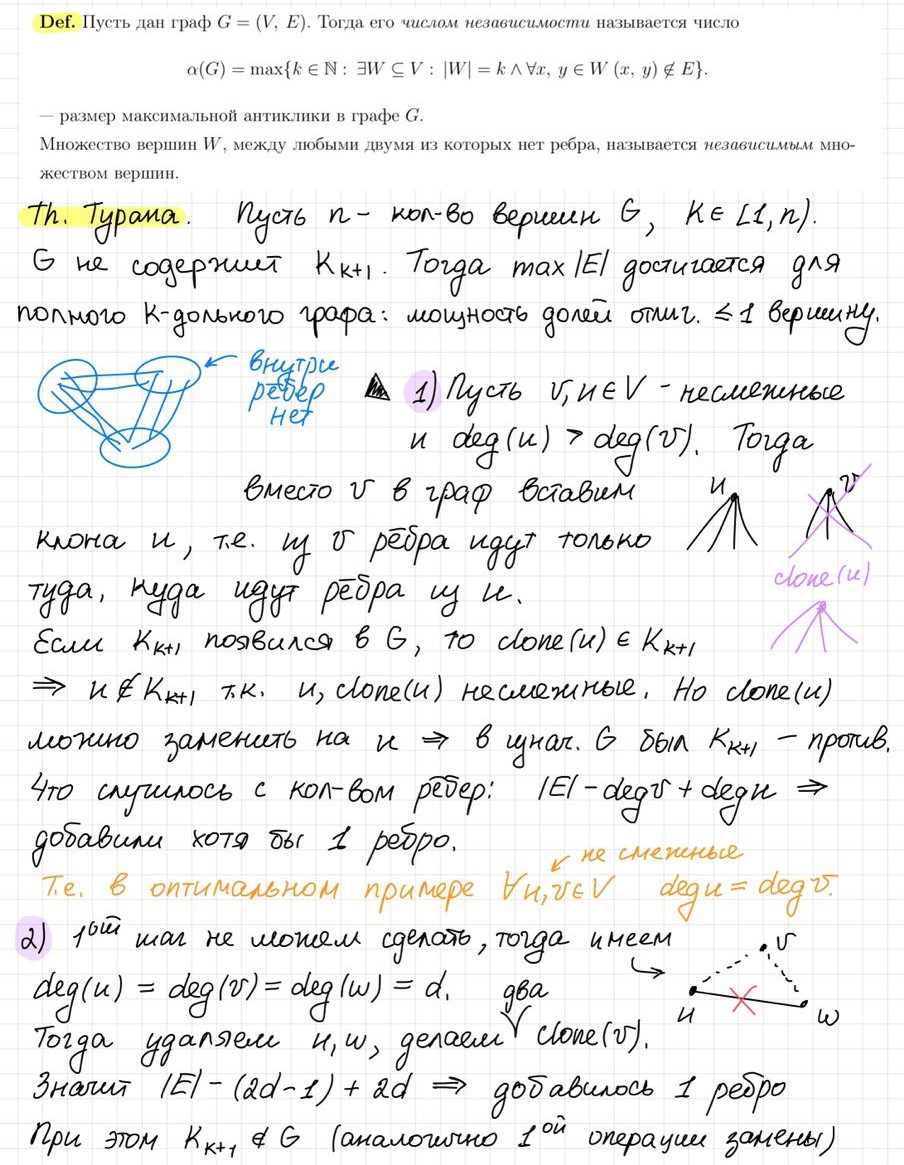 Def. Пусть дан граф G = (V, E). Тогда его числом независимости называется число
α(G) = max{k ∈ ℕ : ∃W ⊆ V : |W| = k ∧ ∀x, y ∈ W (x, y) ∉ E}.
— размер максимальной антиклики в графе G.
Множество вершин W, между любыми двумя из которых нет ребра, называется независимым мно-
жеством вершин.
Th. Турана. Пусть n - кол-во вершин G, K ∈ [1, n).
G не содержит K_{k+1}. Тогда max |E| достигается для
полного K-дольного графа: мощность долей отлич. ≤ 1 вершину.
← внутри
рёбер
нет
1) Пусть v, u ∈ V - несмежные
и deg(u) > deg(v). Тогда
вместо v в граф вставим
u v
клона u, т.е. из v рёбра идут только
clone(u)
туда, куда идут рёбра из u.
Если K_{k+1} появился в G, то clone(u) ∈ K_{k+1}
⇒ u ∉ K_{k+1} т.к. u, clone(u) несмежные. Но clone(u)
можно заменить на u ⇒ в изнач. G был K_{k+1} - против.
Что случилось с кол-вом рёбер: |E| - deg v + deg u ⇒
добавили хотя бы 1 ребро.
не смежные
Т.е. в оптимальном примере ∀u, v ∈ V deg u = deg v.
2) 1ый шаг не можем сделать, тогда имеем
v
deg(u) = deg(v) = deg(w) = d. два
u w
Тогда удаляем u, w, делаем clone(v).
Значит |E| - (2d-1) + 2d ⇒ добавилось 1 ребро
При этом K_{k+1} ∉ G (аналогично 1ой операции замены)